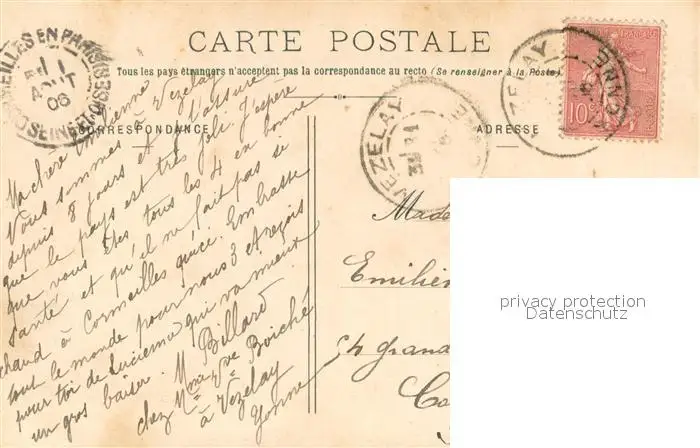 CARTE POSTALE
Tous les pays étrangers n'acceptent pas la correspondance au recto (Se renseigner à la Poste)
CORRESPONDANCE
ADRESSE
CORMEILLES EN PARISIS
SEINE-ET-OISE
1
AOUT
06
VEZELAY
31
VEZELAY
YONNE
10c
Ma chère Emilienne
Nous sommes à Vezelay
depuis 8 jours et je t'assure
que le pays est très joli. J'espère
que vous êtes tous les 4 en bonne
santé et qu'il ne fait pas si
chaud à Cormeilles qu'ici. Embrasse
tout le monde pour nous 3 et reçois
pour toi de Lucienne qui va mieux
un gros baiser. M Billard
chez Mme Vve Boiché
à Vezelay
Yonne
Made
Emilien
54 Grand
Co
privacy protection
Datenschutz